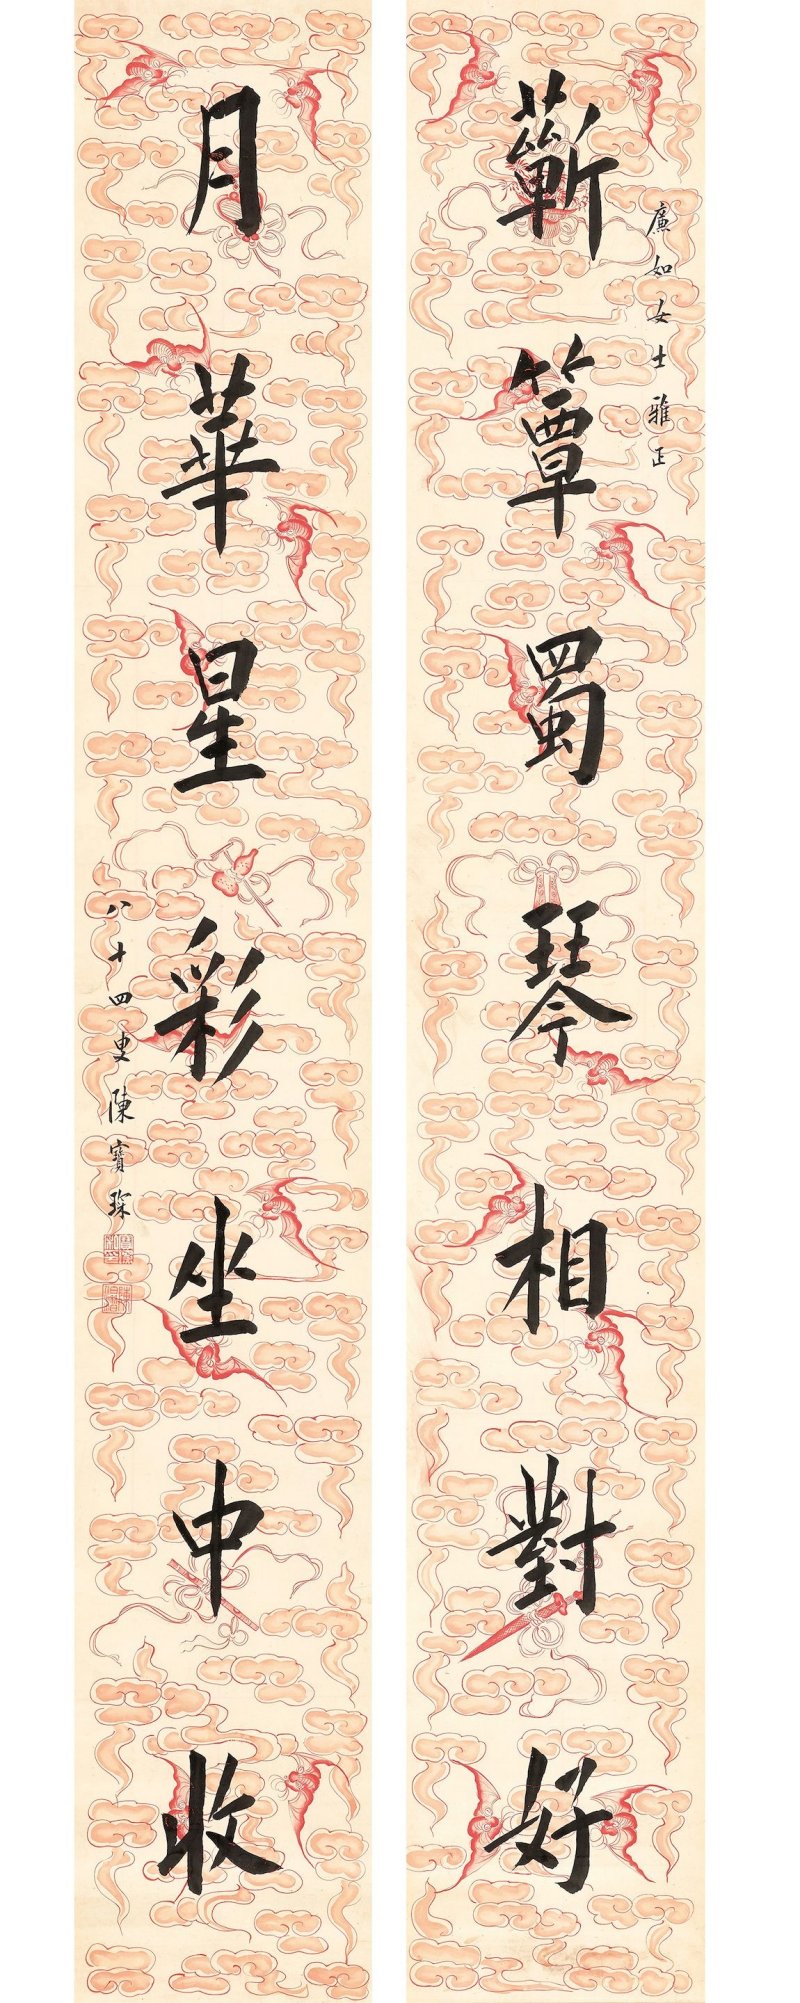 廉如女士雅正
蘄簟蜀琴相對好
月華星彩坐中收
八十四叟陳寶琛